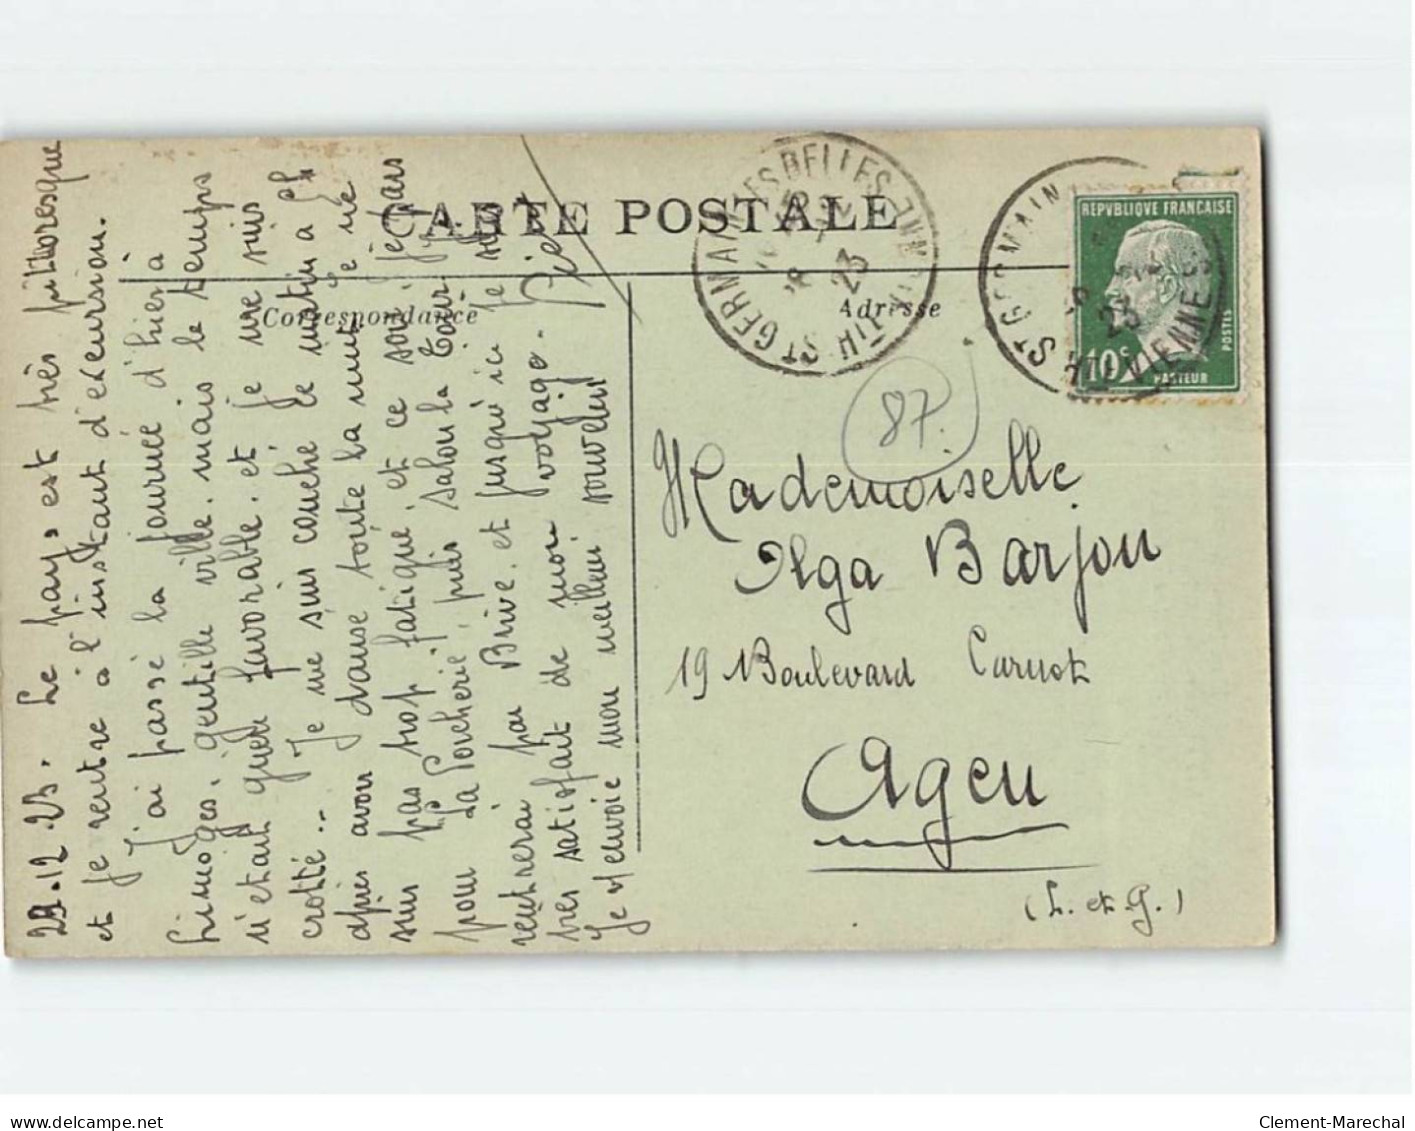 CARTE POSTALE
Correspondance
Adresse
29.12.23. Le pays est très pittoresque
et je rentre à l'instant d'excursion.
J'ai passé la journée d'hier à
Limoges, gentille ville. mais le temps
n'était guère favorable. et je me suis
crotté.. Je me suis couché le matin à 5h
après avoir dansé toute la nuit. je ne
suis pas trop fatigué. et ce soir, je pars
pour La Porcherie, puis Salon la Tour. je
rentrerai par Brive. et jusqu'ici je suis
très satisfait de mon voyage.
Je t'envoie mon meilleur souvenir
ST GERMAIN LES BELLES
HTE VIENNE
23
ST GERMAIN
VIENNE
23
REPVBLIQUE FRANCAISE
POSTES
10c
PASTEUR
87.
Mademoiselle
Olga Barjou
19 Boulevard Carnot
Agen
(L. et G.)
delcampe.net
Clement-Marechal